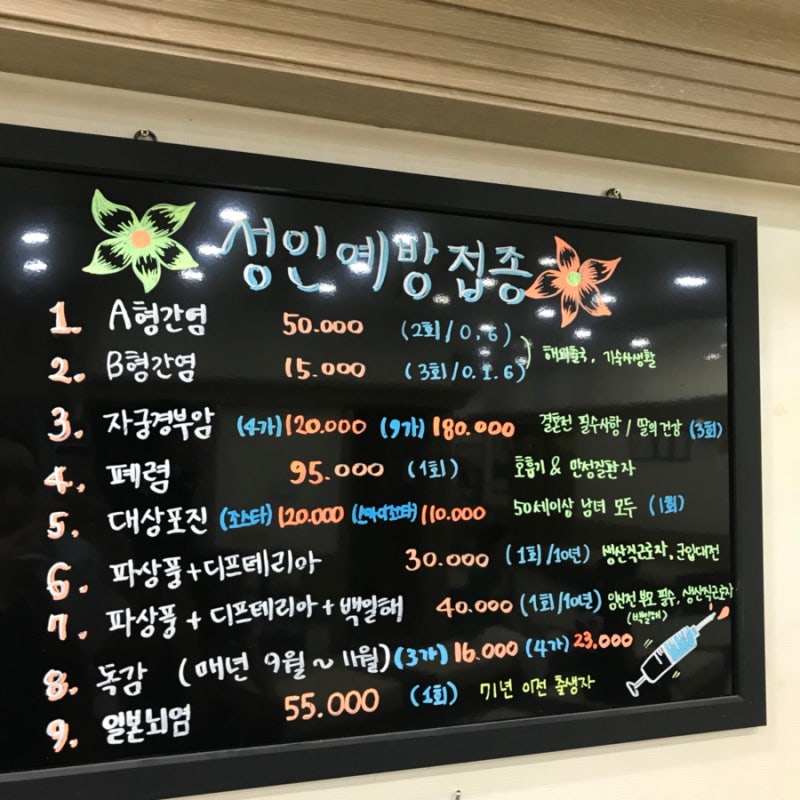 성인예방접종
1. A형간염 50.000 (2회/0,6)
2. B형간염 15.000 (3회/0.1.6) 해외출국, 기숙사생활
3. 자궁경부암 (4가)120.000 (9가) 180.000 결혼전 필수사항 / 딸의 건강 (3회)
4. 폐렴 95.000 (1회) 호흡기 & 만성질환자
5. 대상포진 (조스타) 120.000 (스카이조스타) 110.000 50세이상 남녀 모두 (1회)
6. 파상풍+디프테리아 30.000 (1회/10년) 생산직근로자, 군입대전
7. 파상풍 + 디프테리아 + 백일해 40.000 (1회/10년) 임신전 부모 필수, 생산직근로자
(백일해)
8. 독감 (매년 9월 ~ 11월) (3가) 16.000 (4가) 23,000
9. 일본뇌염 55.000 (1회) 71년 이전 출생자